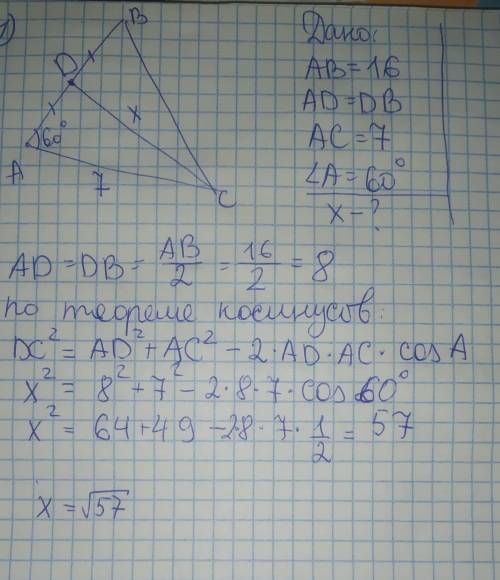 1)
B
D
x
60°
A
7
C
Дано:
AB=16
AD=DB
AC=7
∠A=60°
x-?
AD=DB= AB/2 = 16/2 = 8
по теореме косинусов:
DC² = AD² + AC² - 2·AD·AC·cosA
x² = 8² + 7² - 2·8·7·cos60°
x² = 64+49 - 2·8·7·1/2 = 57
x = √57